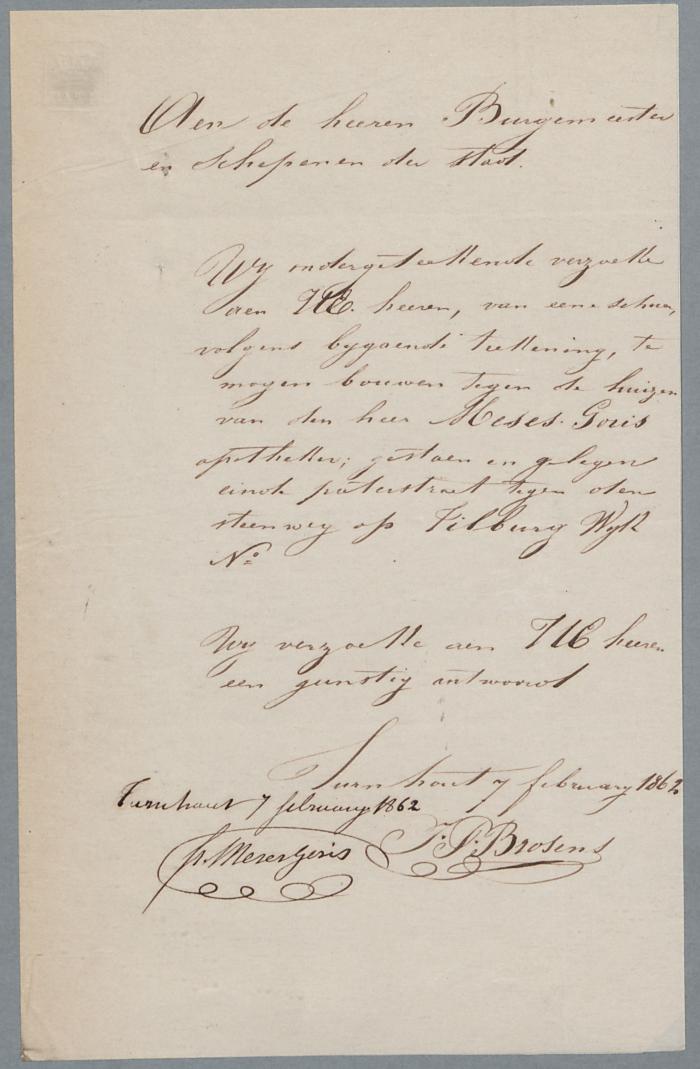 Aen de heeren Burgemeester
en schepenen der stad.
Wy ondergeteekende verzoekke
aen UE. heeren, van eene schuer,
volgens bygaende teekening, te
mogen bouwen tegen de huizen
van den heer Meses. Goris
apotheker; gestaen en gelegen
einde paterstraet tegen den
steenweg op Tilburg Wyk
N°
Wy verzoekke aen UE heeren
een gunstig antwoord
Turnhout 7 february 1862
Turnhout 7 february 1862
J. F. Brosens